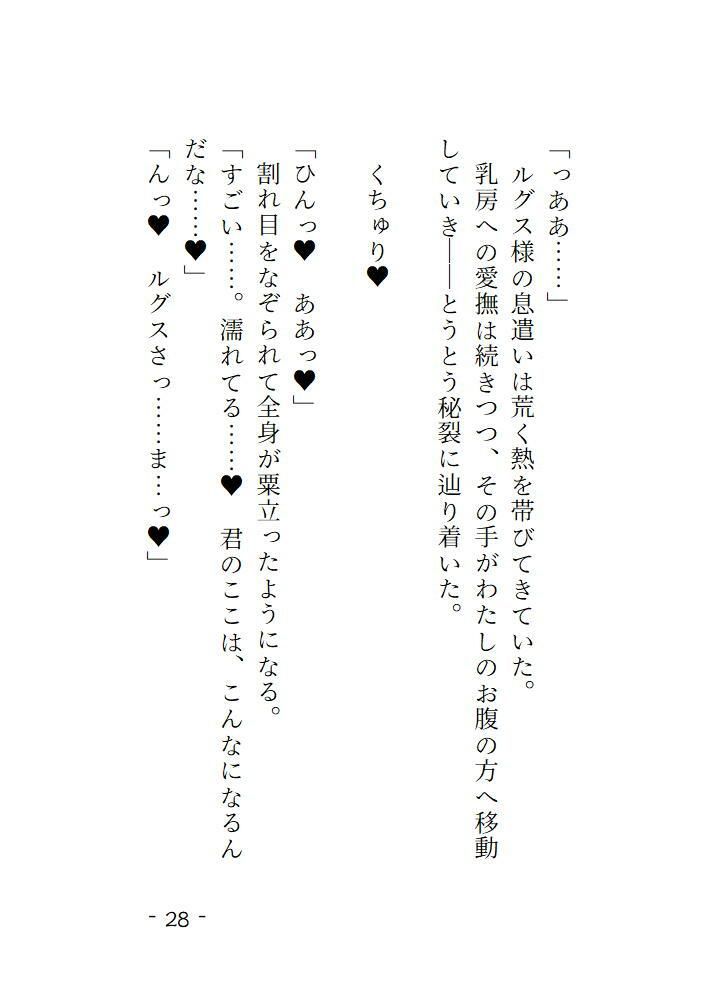 「っああ……」
　ルグス様の息遣いは荒く熱を帯びてきていた。
　乳房への愛撫は続きつつ、その手がわたしのお腹の方へ移動
していき――とうとう秘裂に辿り着いた。
　くちゅり♥
「ひんっ♥　ああっ♥」
　割れ目をなぞられて全身が粟立ったようになる。
「すごい……。濡れてる……♥　君のここは、こんなになるん
だな……♥」
「んっ♥　ルグスさっ……ま…っ♥」
- 28 -